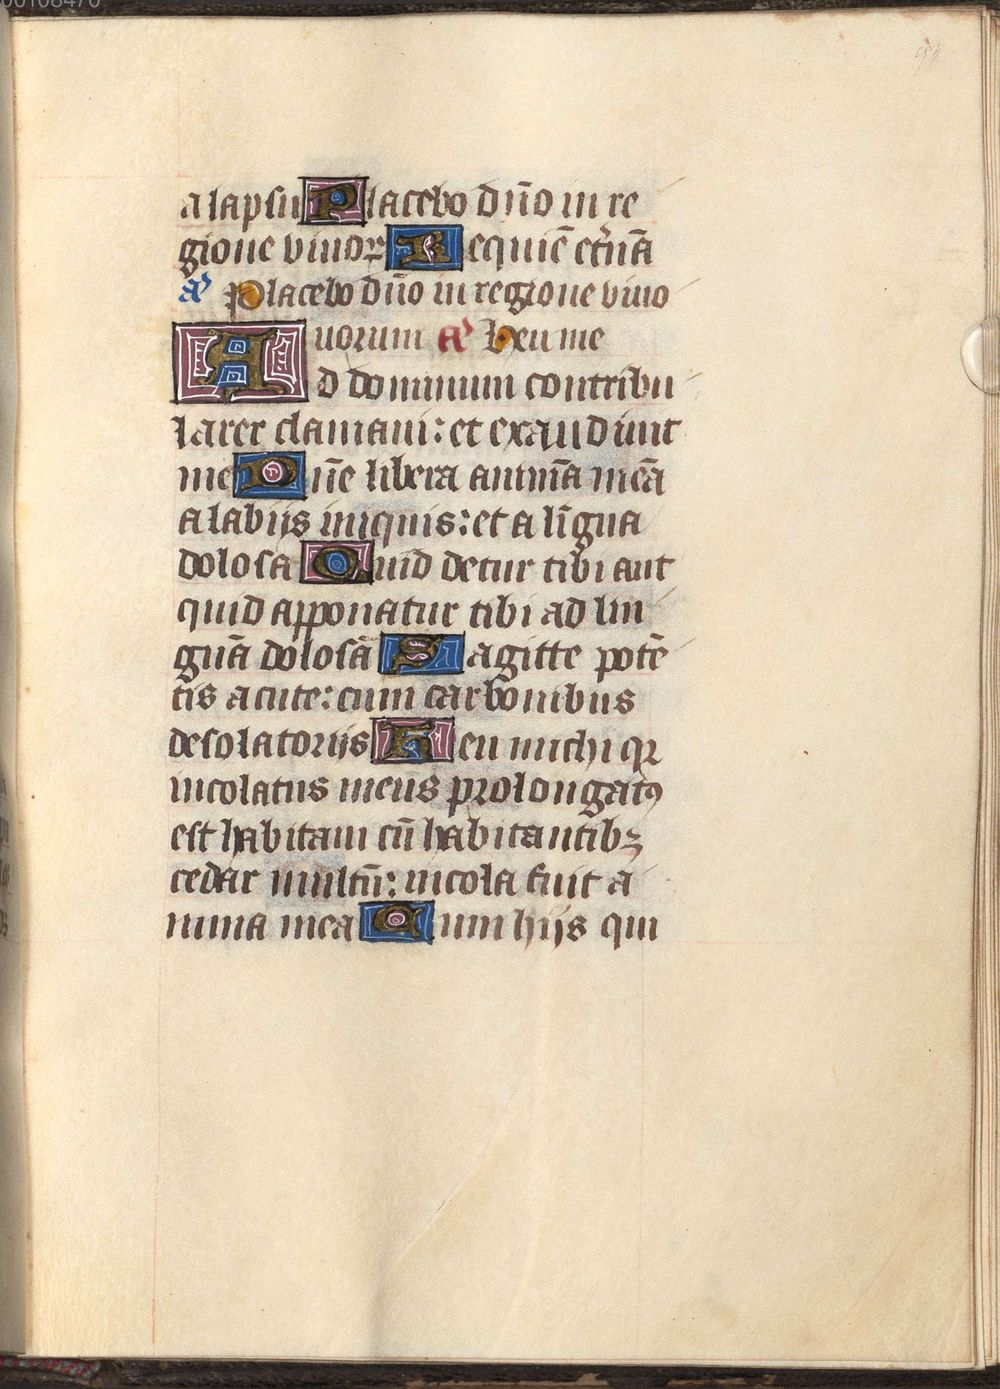 00108470
94
a lapsu Placebo dño in re
gione viuoꝝ Requiē et̾nā
a᾿ Placebo dño in regione viuo
uorum a᾿ heu me
Ad dominum contribu
larer clamaui: et exaudiuit
me Dñe libera animā meā
a labijs iniquis: et a līgua
dolosa Quid detur tibi aut
quid apponatur tibi ad lin
guā dolosā Sagitte potē
tis acute: cum carbonibus
desolatorijs Heu michi qꝛ
incolatus meus prolongatꝰ
est habitaui cū habitantibꝫ
cedar multū: incola fuit a
nima mea Cum hijs qui